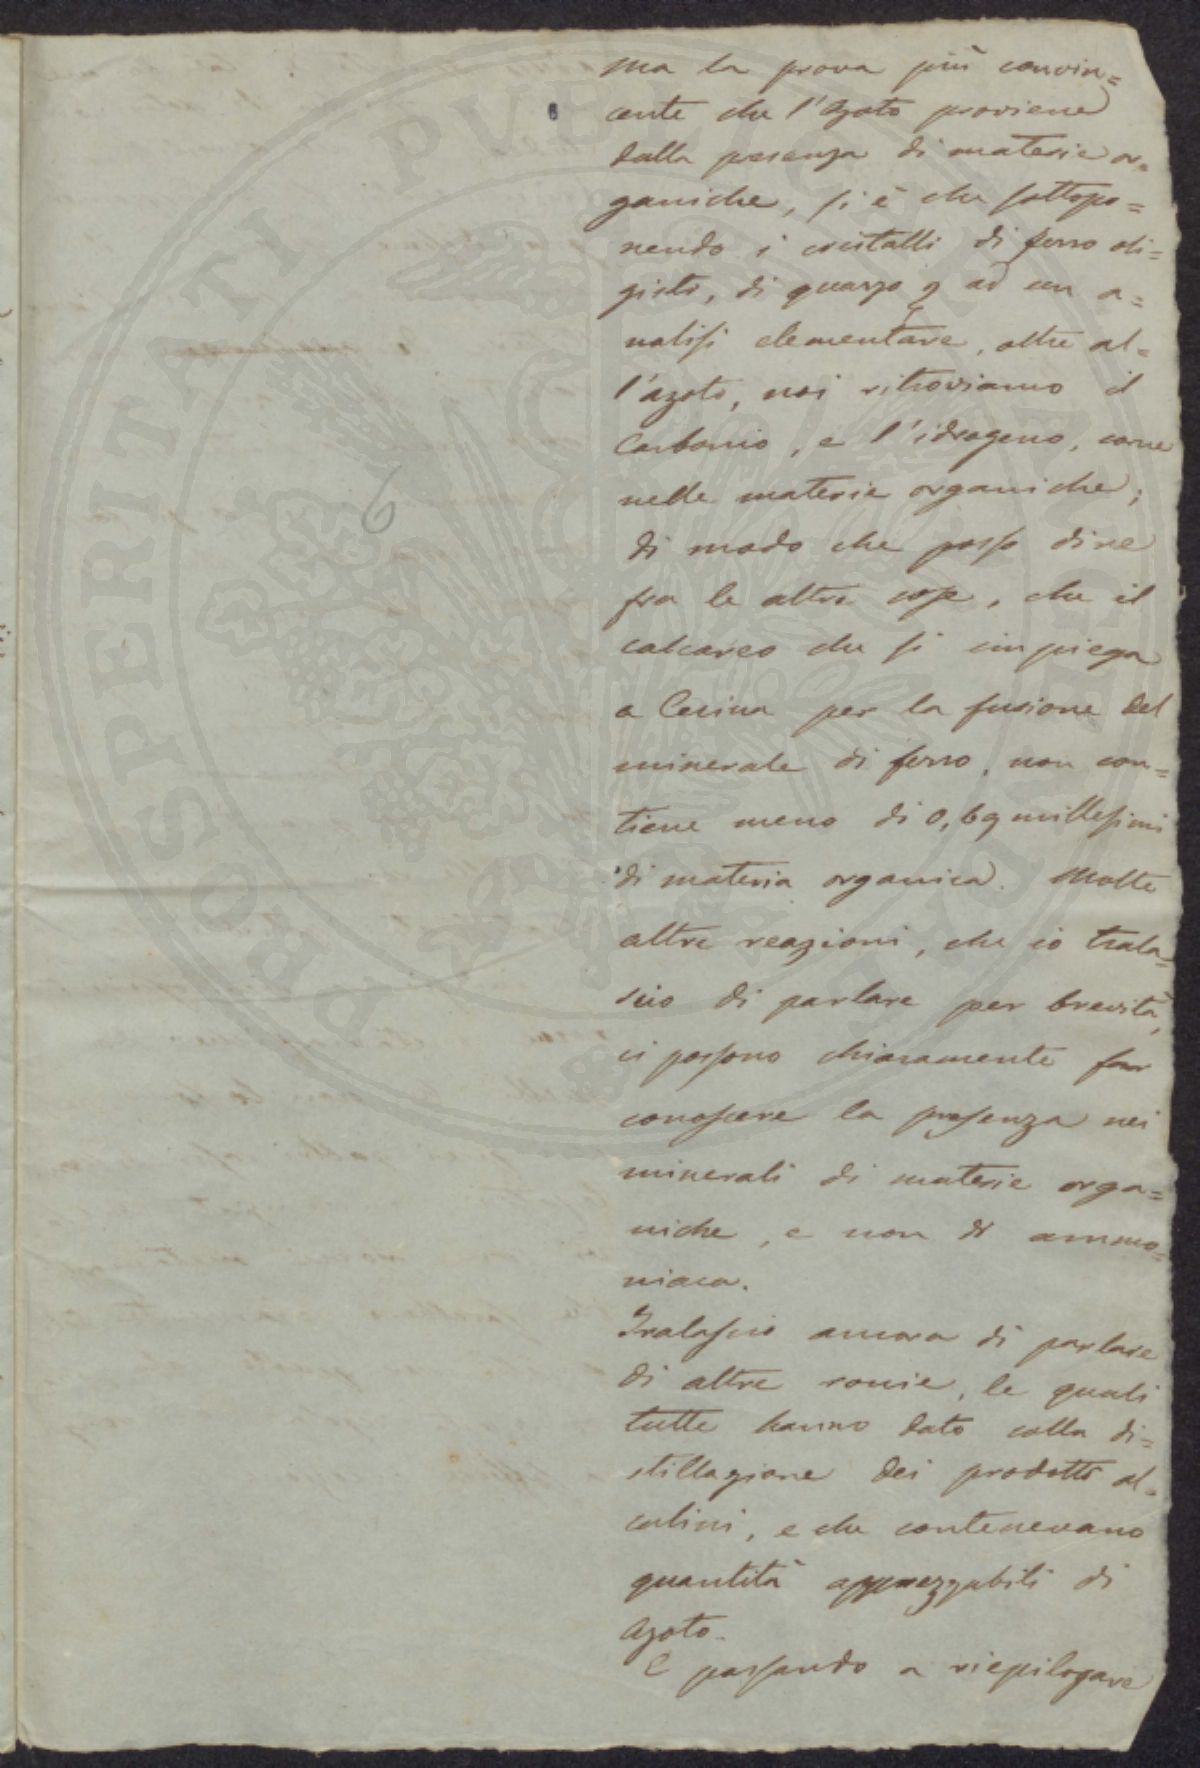 6
6
ma la prova più convin=
cente che l'Azoto proviene
dalla presenza di materie or=
ganiche, si è che sottopo=
nendo i cristalli di ferro oli=
gisto, di quarzo ad un a=
nalisi elementare, oltre al=
l'azoto, noi ritroviamo il
Carbonio, e l'idrogeno, come
nelle materie organiche;
di modo che posso dire
fra le altre cose, che il
calcareo che si impiega
a Cecina per la fusione del
minerale di ferro, non con=
tiene meno di 0,69 millesimi
di materia organica. Molte
altre reazioni, che io trala=
scio di parlare per brevità,
ci possono chiaramente far
conoscere la presenza nei
minerali di materie orga=
niche, e non di ammo=
niaca.
Tralascio ancora di parlare
di altre roccie, le quali
tutte hanno dato colla di=
stillazione dei prodotti al=
calini, e che contenevano
quantità apprezzabili di
azoto.
E passando a riepilogare
PROSPERITATI PVBLICAE